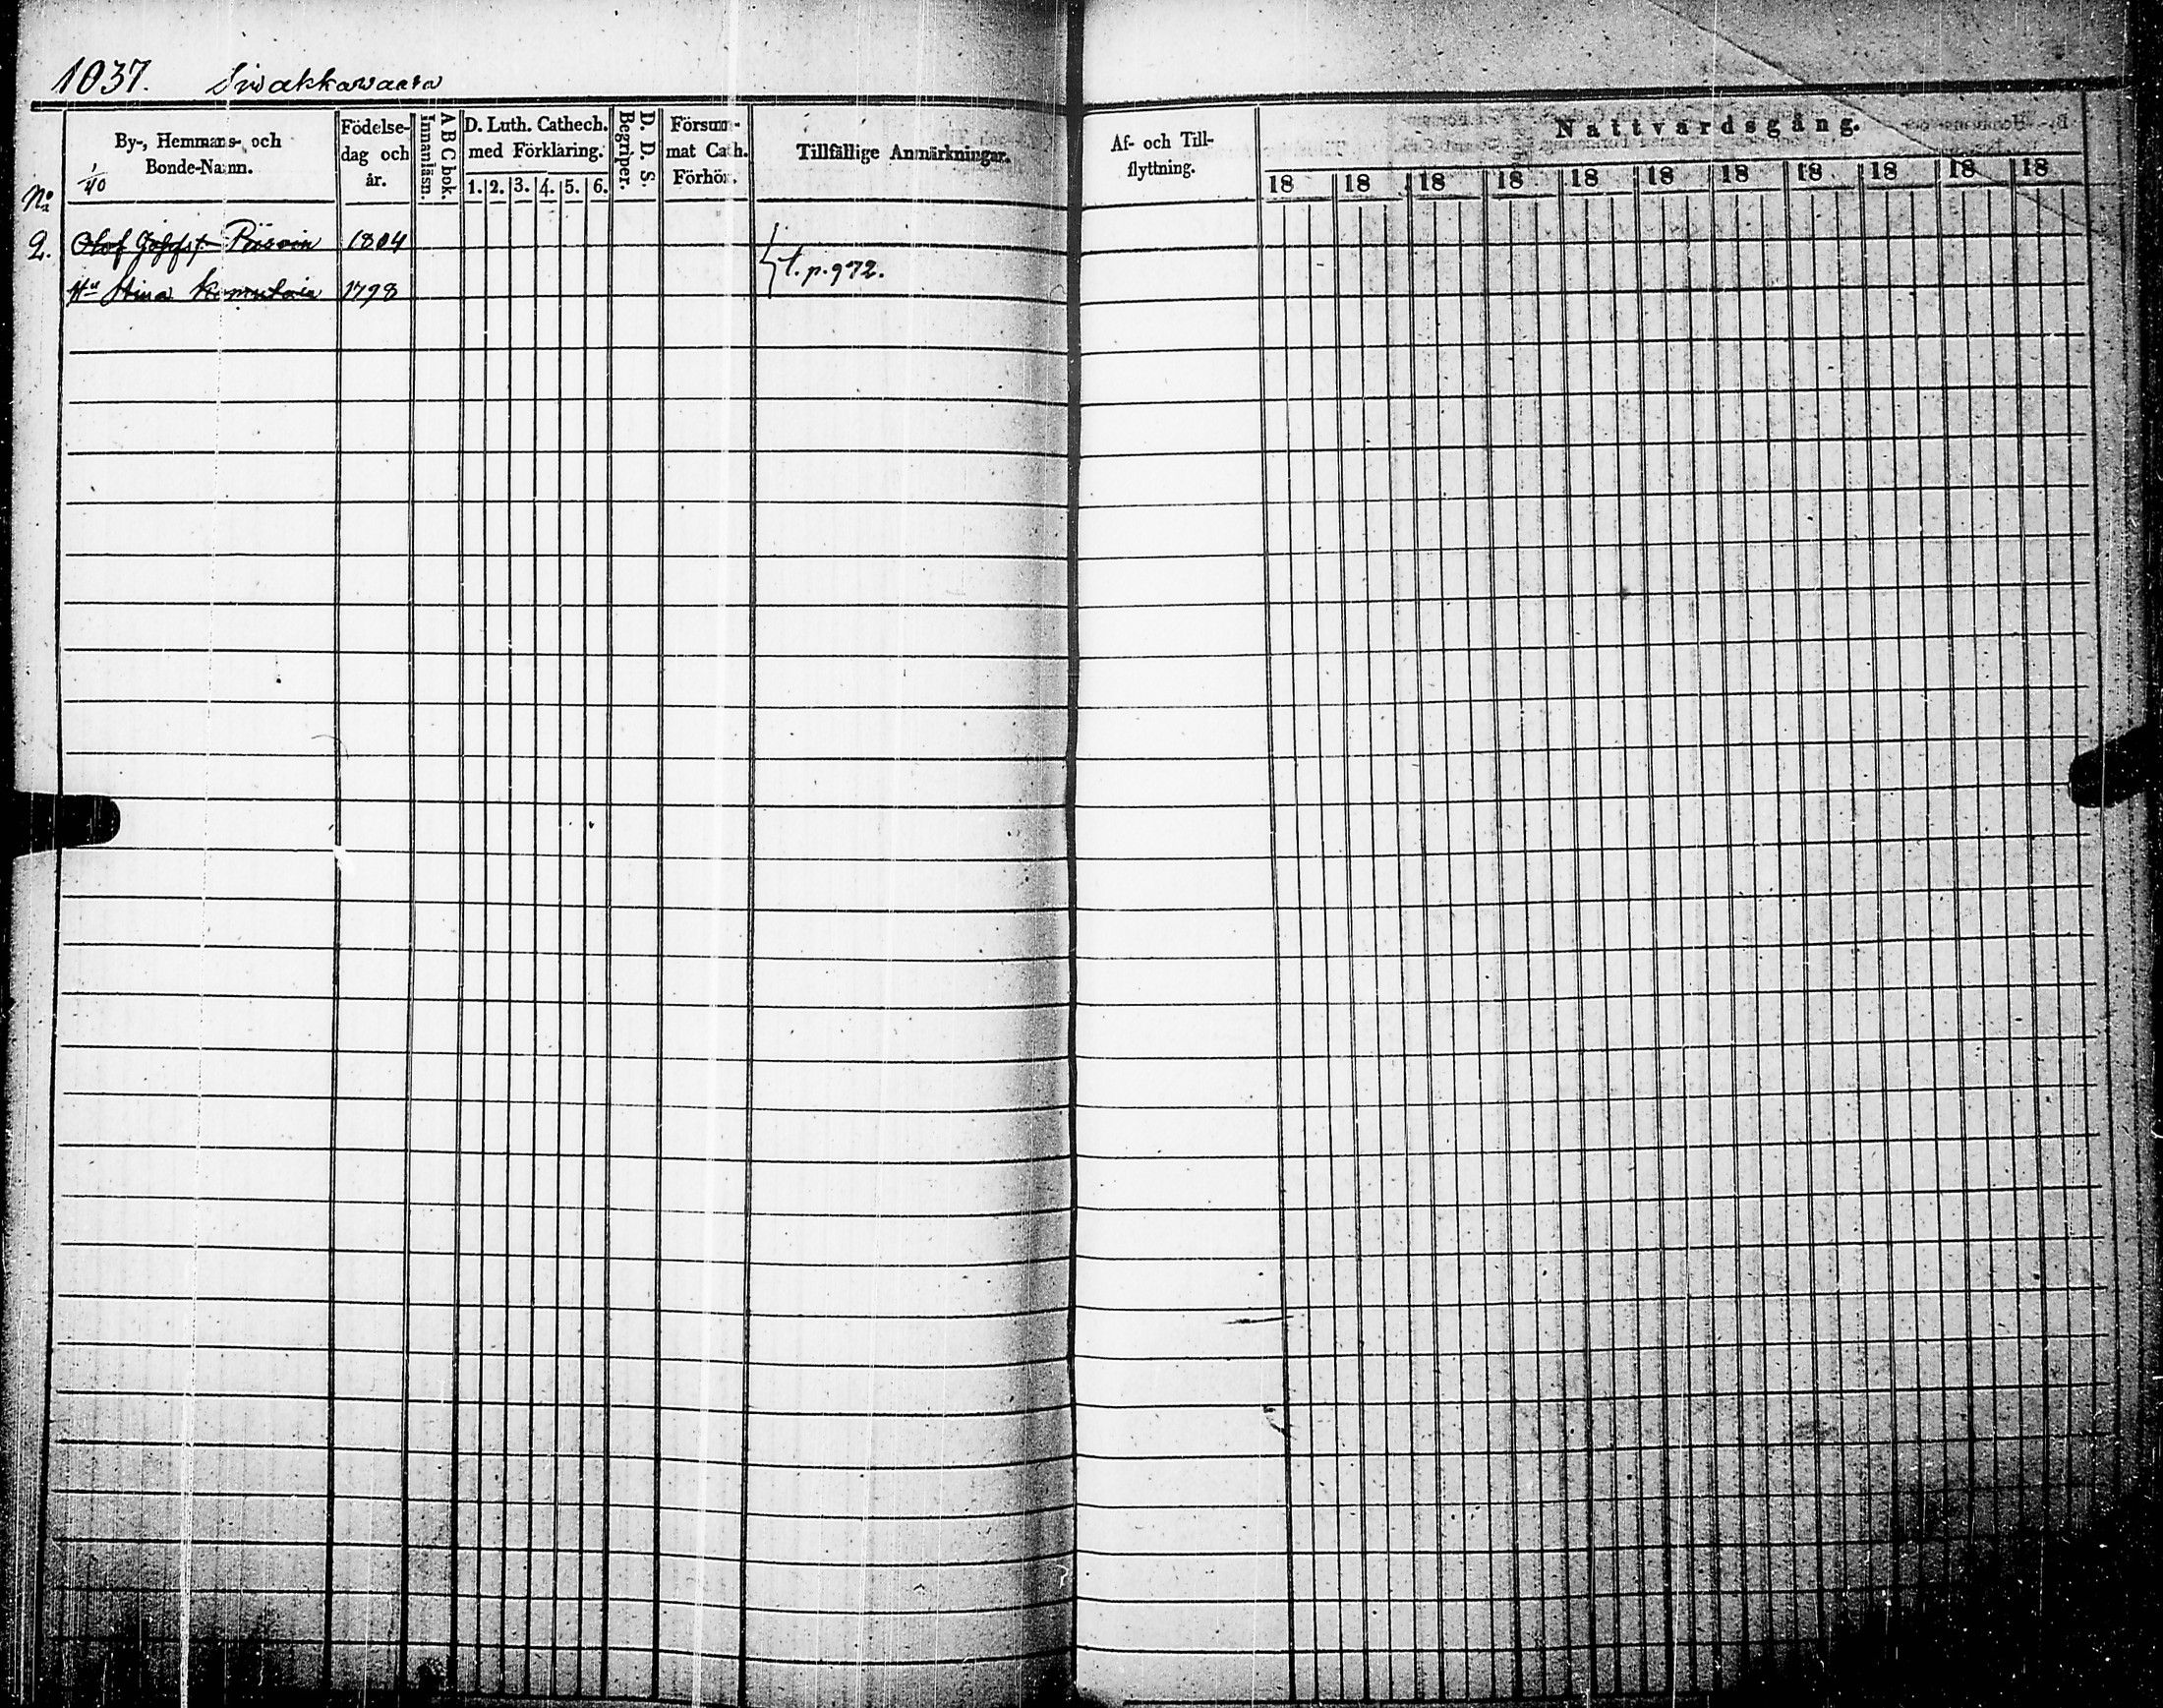 1037. Siwakkawaara
By-, Hemmans-, och
Bonde-Namn.
1/40
No
Födelse-
dag och
år.
Innanläsn.
A B C bok.
D. Luth. Cathech.
med Förklaring.
1. 2. 3. 4. 5. 6.
Begriper.
D. D. S.
Försum-
mat Cath.
Förhör.
Tillfällige Anmärkningar.
Af- och Till-
flyttning.
Nattvardsgång.
18 18 18 18 18 18 18 18 18 18 18
2. Olof Piiroin 1804
Hu Stina 1798
t.p.972.